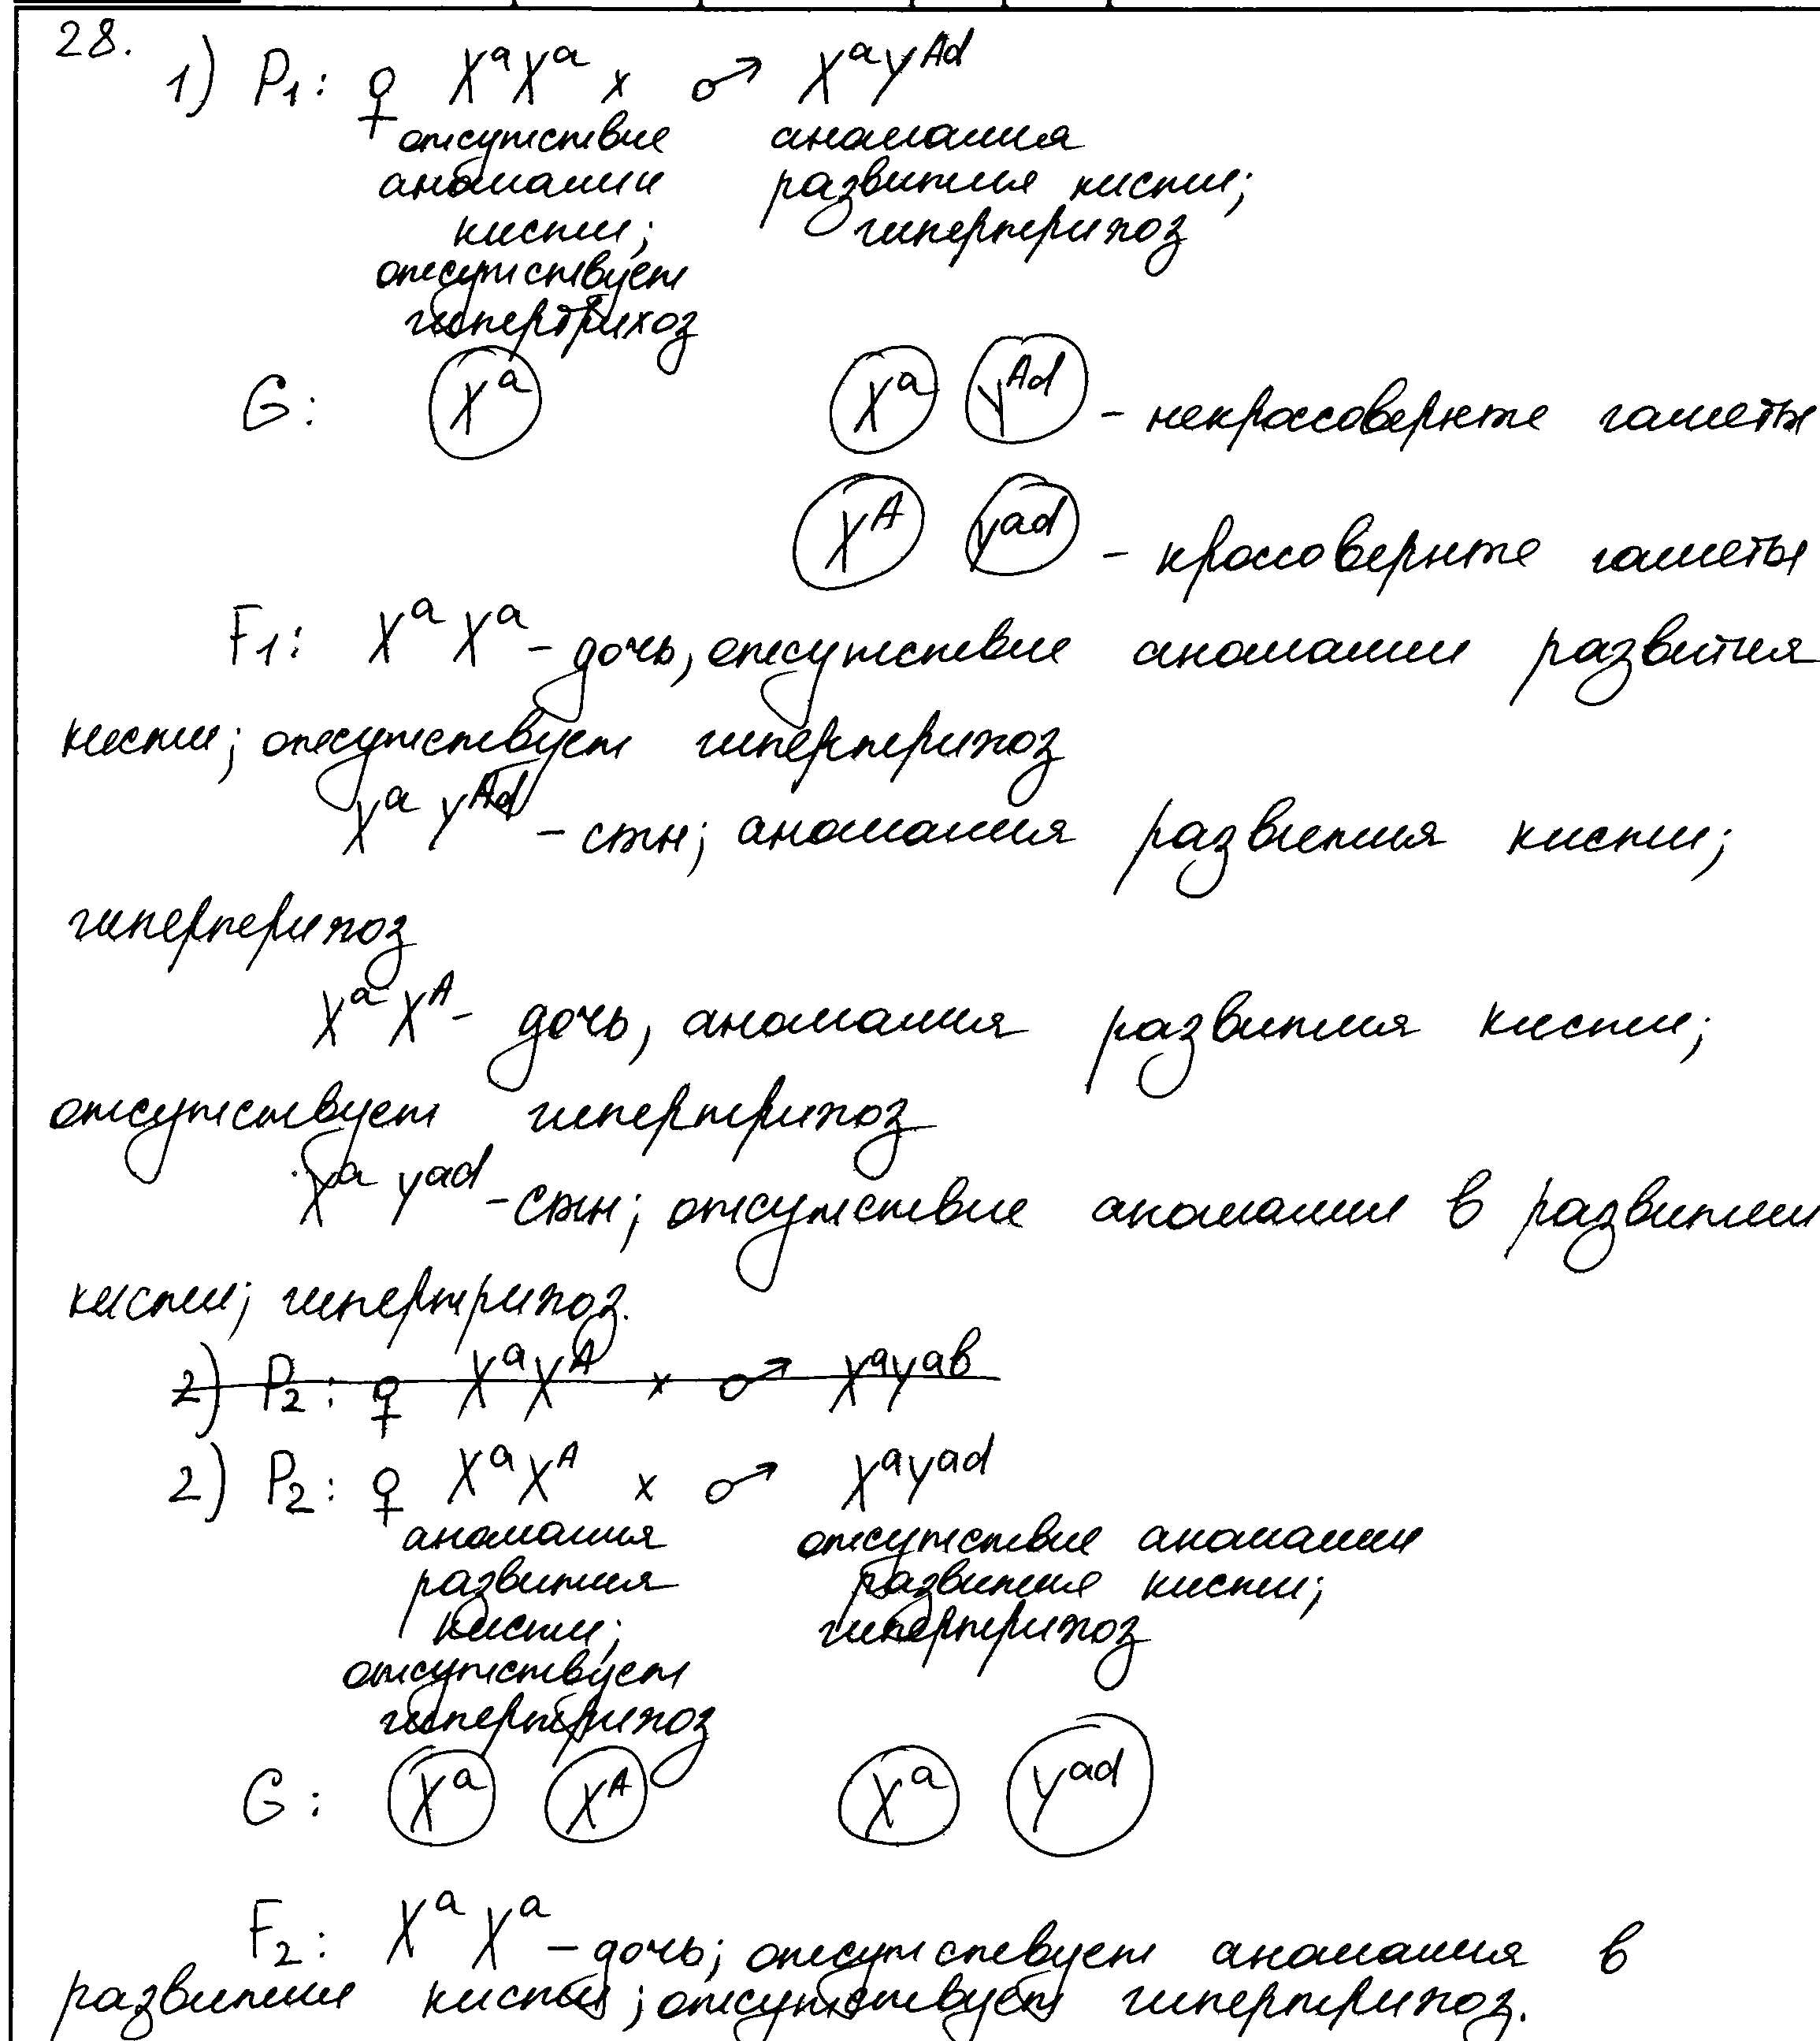 28.
1) P₁: ♀ XᵃXᵃ x ♂ XᵃYᴬᵈ
отсутствие аномалия
аномалии развития кисти;
кисти; гипертрихоз
отсутствует
гипертрихоз
G: Xᵃ Xᵃ Yᴬᵈ - некроссоверные гаметы
Xᴬ Yᵃᵈ - кроссоверные гаметы
F₁: Xᵃ Xᵃ - дочь, отсутствие аномалии развития
кисти; отсутствует гипертрихоз
Xᵃ Yᴬᵈ - сын; аномалия развития кисти;
гипертрихоз
Xᵃ Xᴬ - дочь, аномалия развития кисти;
отсутствует гипертрихоз
Xᵃ Yᵃᵈ - сын; отсутствие аномалии в развитии
кисти; гипертрихоз.
2) P₂: ♀ XᵃXᴬ x ♂ XᵃYᵃᵇ
2) P₂: ♀ XᵃXᴬ x ♂ XᵃYᵃᵈ
аномалия отсутствие аномалии
развития развития кисти;
кисти; гипертрихоз
отсутствует
гипертрихоз
G: Xᵃ Xᴬ Xᵃ Yᵃᵈ
F₂: Xᵃ Xᵃ - дочь; отсутствует аномалия в
развитии кисти; отсутствует гипертрихоз.